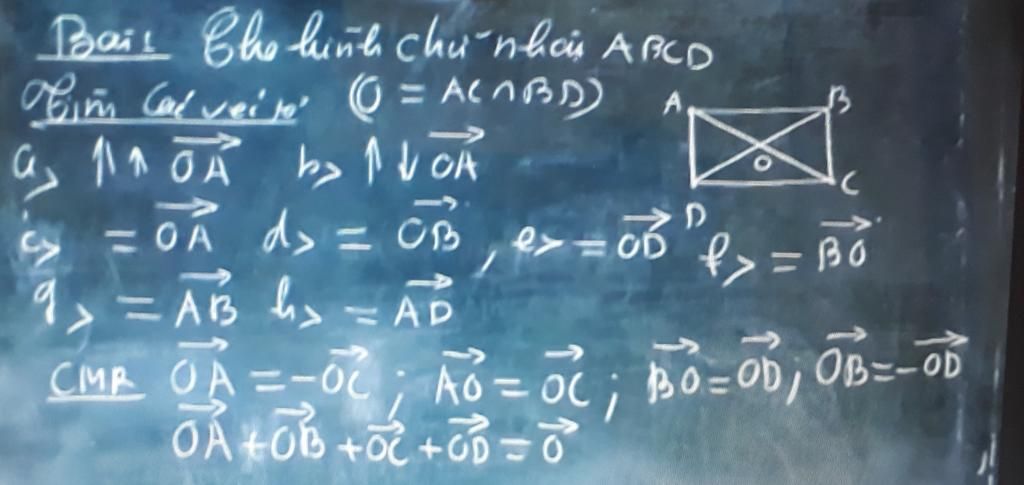 Bài 1 Cho hình chữ nhật ABCD
Tìm các vectơ (O = AC ∩ BD)
a> ↑↑ \overrightarrow{OA} b> ↑↓ \overrightarrow{OA}
c> = \overrightarrow{OA} d> = \overrightarrow{OB} , e> = \overrightarrow{OD} f> = \overrightarrow{BO}
g> = \overrightarrow{AB} h> = \overrightarrow{AD}
CMR \overrightarrow{OA} = -\overrightarrow{OC} ; \overrightarrow{AO} = \overrightarrow{OC} ; \overrightarrow{BO} = \overrightarrow{OD} ; \overrightarrow{OB} = -\overrightarrow{OD}
\overrightarrow{OA} + \overrightarrow{OB} + \overrightarrow{OC} + \overrightarrow{OD} = \overrightarrow{O}
A B
O
D C